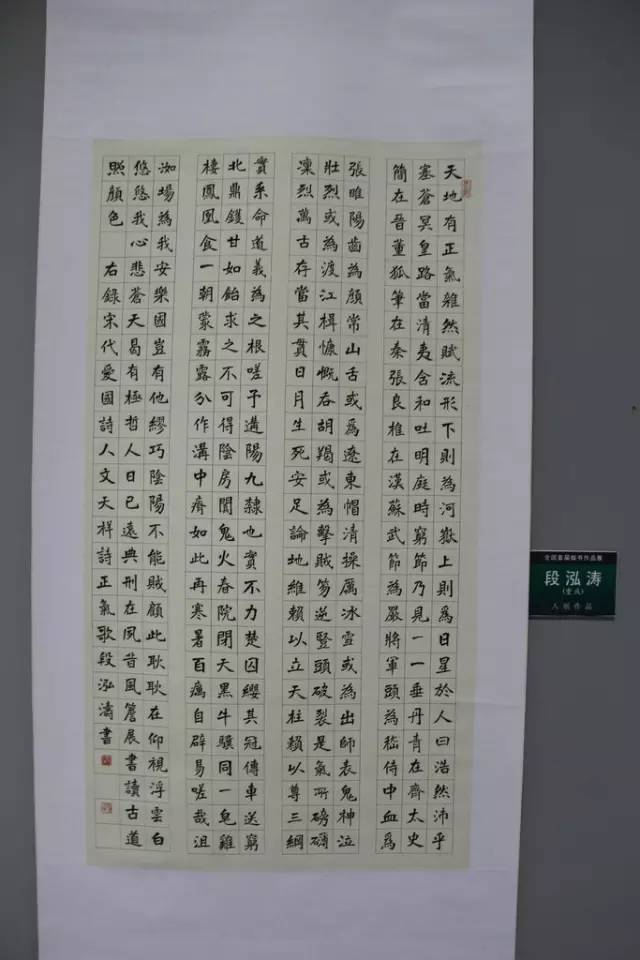 天地有正氣雜然賦流形下則為河嶽上則為日星於人曰浩然沛乎
塞蒼冥皇路當清夷含和吐明庭時窮節乃見一一垂丹青在齊太史
簡在晉董狐筆在秦張良椎在漢蘇武節為嚴將軍頭為嵇侍中血為
張睢陽齒為顏常山舌或為遼東帽清操厲冰雪或為出師表鬼神泣
壯烈或為渡江楫慷慨吞胡羯或為擊賊笏逆豎頭破裂是氣所磅礴
凜烈萬古存當其貫日月生死安足論地維賴以立天柱賴以尊三綱
實系命道義為之根嗟予遘陽九隸也實不力楚囚纓其冠傳車送窮
北鼎鑊甘如飴求之不可得陰房闃鬼火春院閉天黑牛驥同一皂雞
棲鳳凰食一朝蒙霧露分作溝中瘠如此再寒暑百癘自辟易嗟哉沮
洳場為我安樂國豈有他繆巧陰陽不能賊顧此耿耿在仰視浮雲白
悠悠我心悲蒼天曷有極哲人日已遠典刑在夙昔風簷展書讀古道
照顏色 右錄宋代愛國詩人文天祥詩正氣歌段泓濤書
全国首届楷书作品展
段泓涛
(重庆)
入展作品